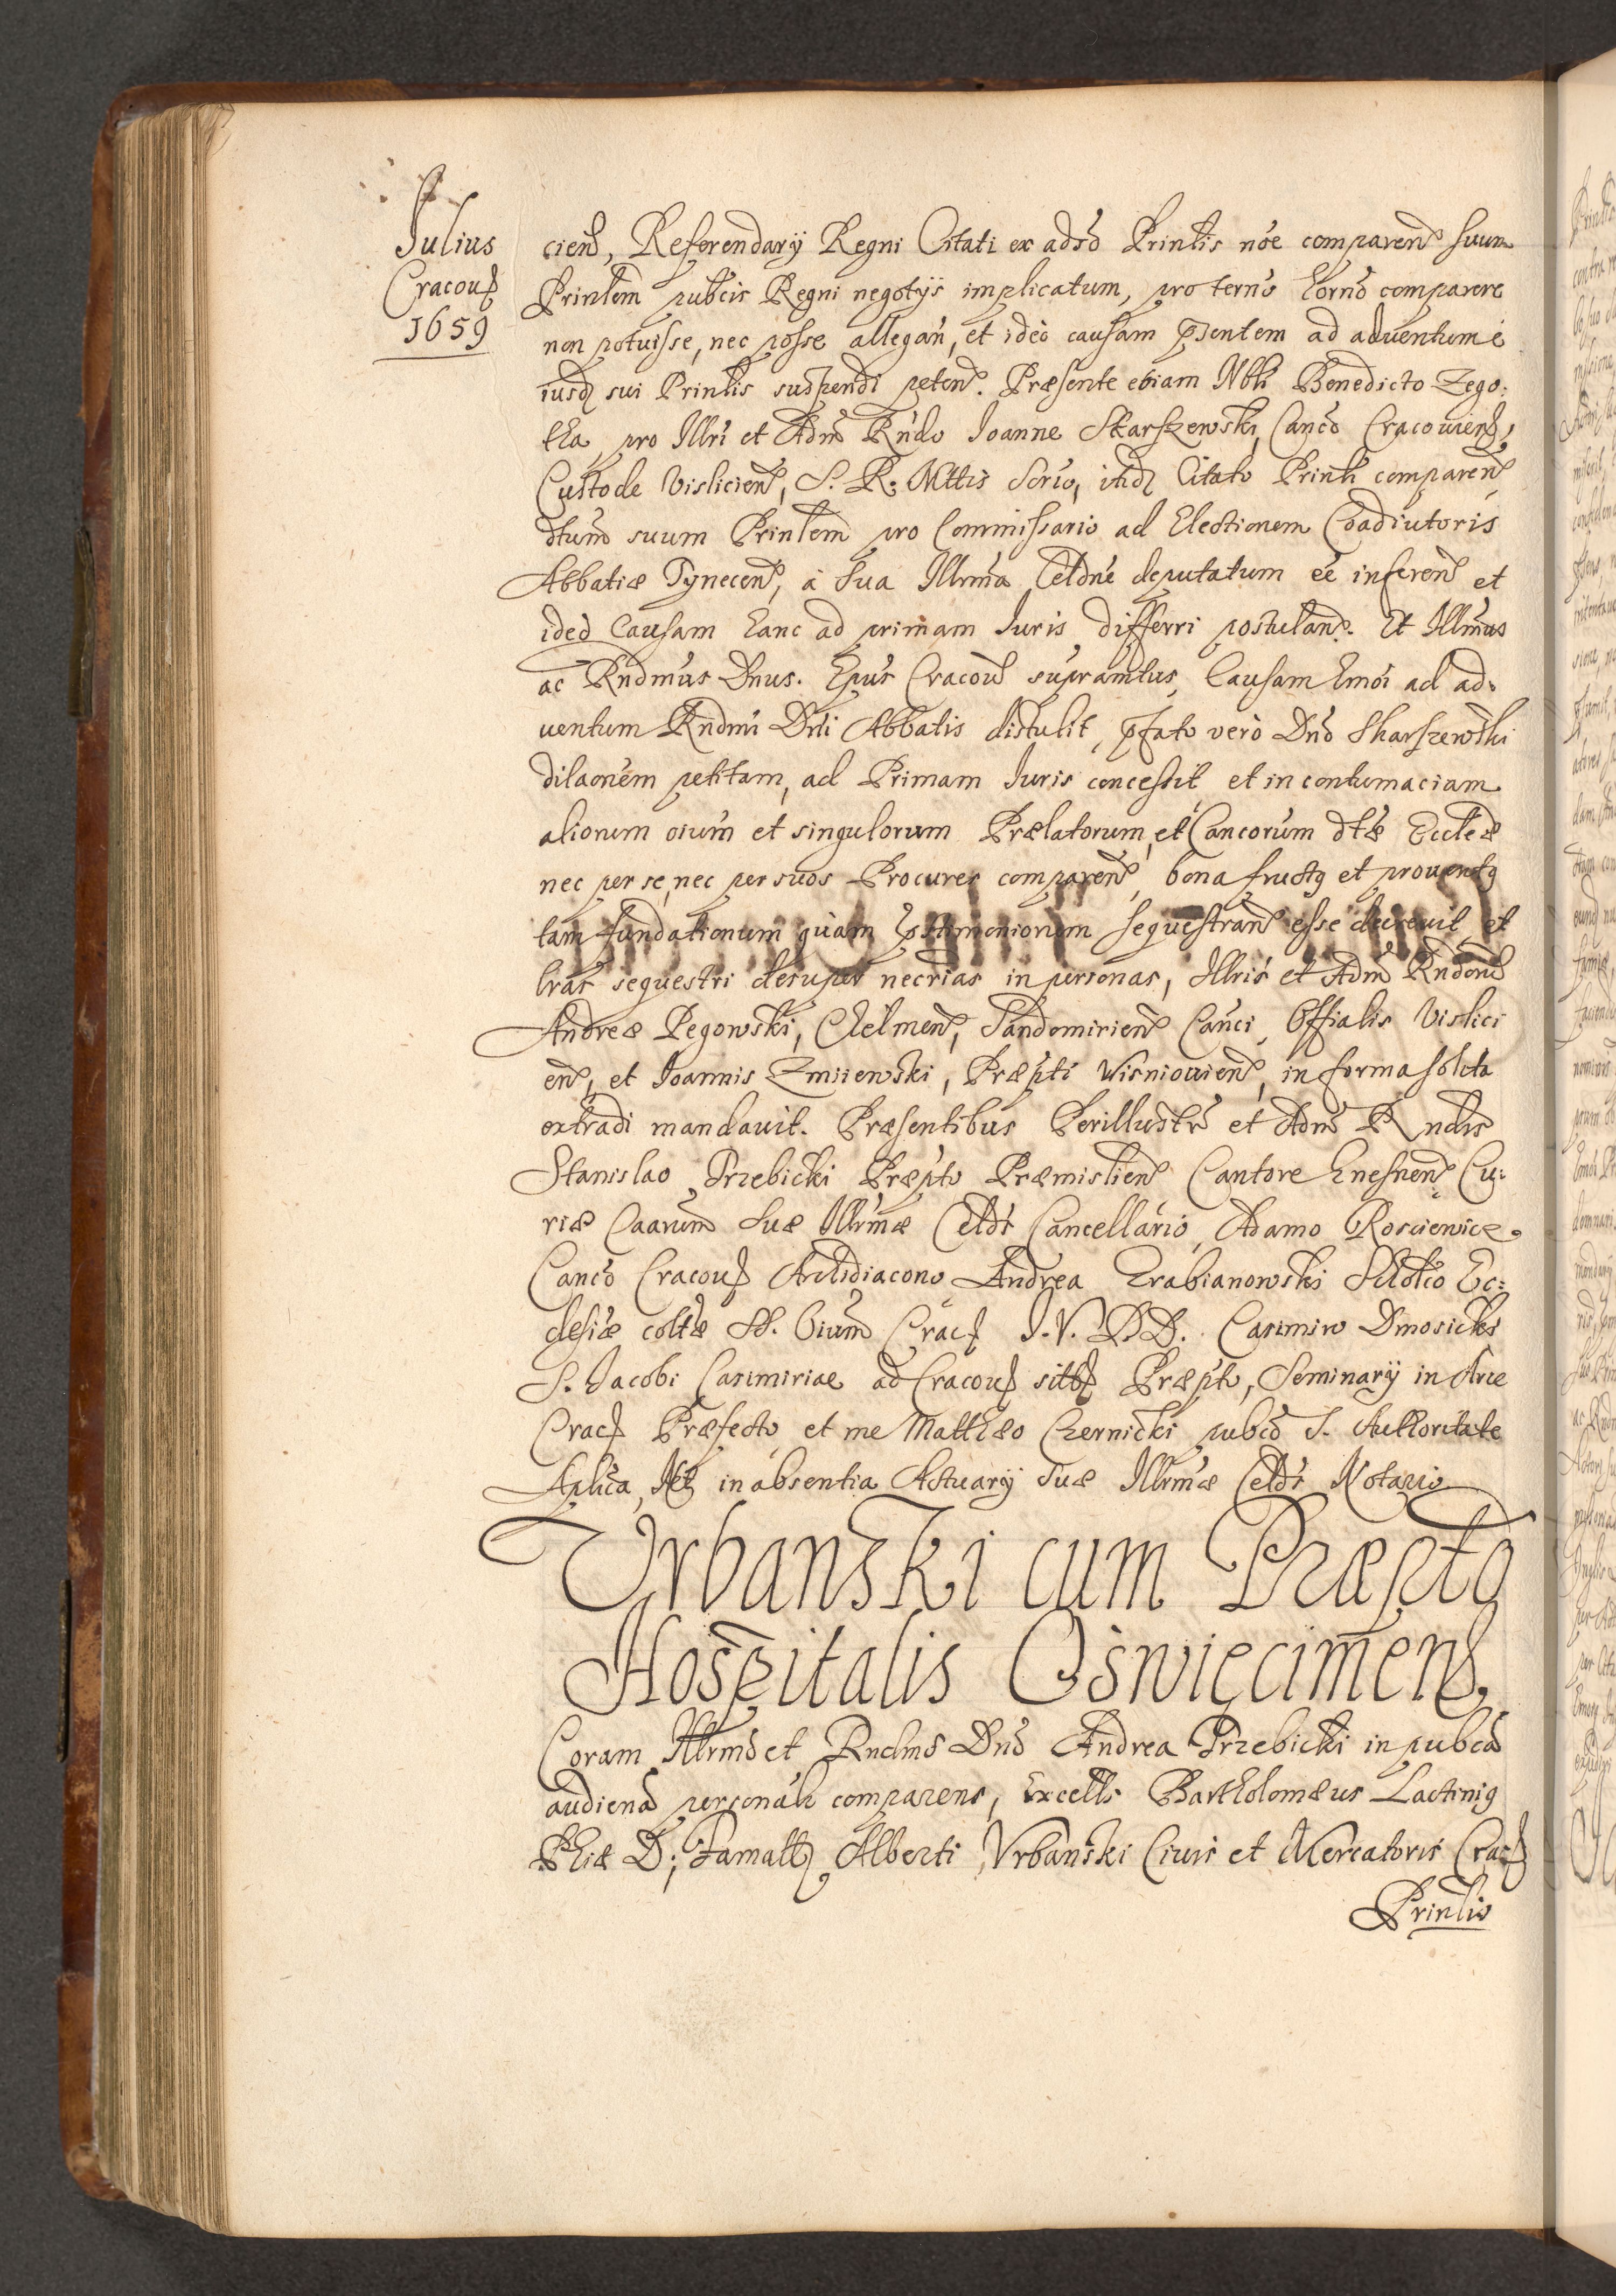 Julius
Cracou̅
1659
cien̅, Referendarÿ Regni Citati ex adso̅ Prinlis noe̅ comparen̅ suum
Prinlem pubcis Regni negotÿs implicatum, pro termo horno̅ comparere
non potuisse, nec posse allegan̅, et ideò causam pn̅sentem ad aduentum e
iusd sui Prinlis suspendi peten̅. Præsente etiam Nbli Benedicto Zego:
tha pro Illri et Adm̅ Rndo Joanne Skarszewski Canco̅ Cracouien̅,
Custode Vislicien̅, S. R. Mttis Scrio, itid Citato Prinli comparen̅
dtum̅ suum Prinlem pro Commissario ad Electionem Coadiutoris
Abbatiæ Tynecen̅, à Sua Illrma Celdne deputatum ee̅ inferen̅ et
ideò Causam hanc ad primam Juris differri postulan̅. Et Illmus
ac Rndmus Dnus. Epus Cracou̅ supramtus, Causam hmoi ad ad:
uentum Rndmi Dni Abbatis distulit, pfato verò Dno̅ Skarszewski
dilaonem petitam, ad Primam Juris concessit et in contumaciam
aliorum oium et singulorum Prælatorum, et Cancorum dtæ Eccleæ
nec per se, nec per suos Procures comparen̅, bona fructq et prouentq
tam fundationum quàm testimoniorum sequestran̅ esse decreuit et
lras sequestri desuper necrias in personas, Illris et Adm̅ Rndoru̅
Andreæ Pegowski, Chelmen̅, Sandomirien̅ Canci, Offialis Vislici
en̅, et Joannis Zmiiewski, Præpti Wisniouien̅, in forma solita
extradi mandauit. Præsentibus Perillustr̅ et Adm̅ Rndis
Stanislao Trzebicki Præpto Præmislien̅ Cantore Gnesnen̅ Cu:
riæ Caarum̅ Suæ Illrmæ Celdis Cancellario, Adamo Rosciewicz
Canco̅ Cracou̅ Archidiacono Andrea Grabianowski Schlco Ec:
clesiæ coltæ SS. Oium̅ Crac̅ J. V. DD. Casimiro Dmosicki
S. Jacobi Casimiriae ad Cracou̅ sitæ Præpto, Seminarÿ in Arce
Crac̅ Præfecto, et me Matthæo Czernicki pubco̅ S. Authoritate
Aplica, Et in absentia Actuarÿ Suæ Illrmæ Celdis Notario
Vrbanski cum Præpto
Hospitalis Oswięcimen̅.
Coram Illrmo̅ et Rndmo̅ Dno̅ Andrea Trzebicki in pubca̅
audiena̅ personali̅ comparens, Excells Bartholomæus Lactinig
Phiæ D; Famatt Alberti Vrbanski Ciuis et Mercatoris Crac̅
Prinlis